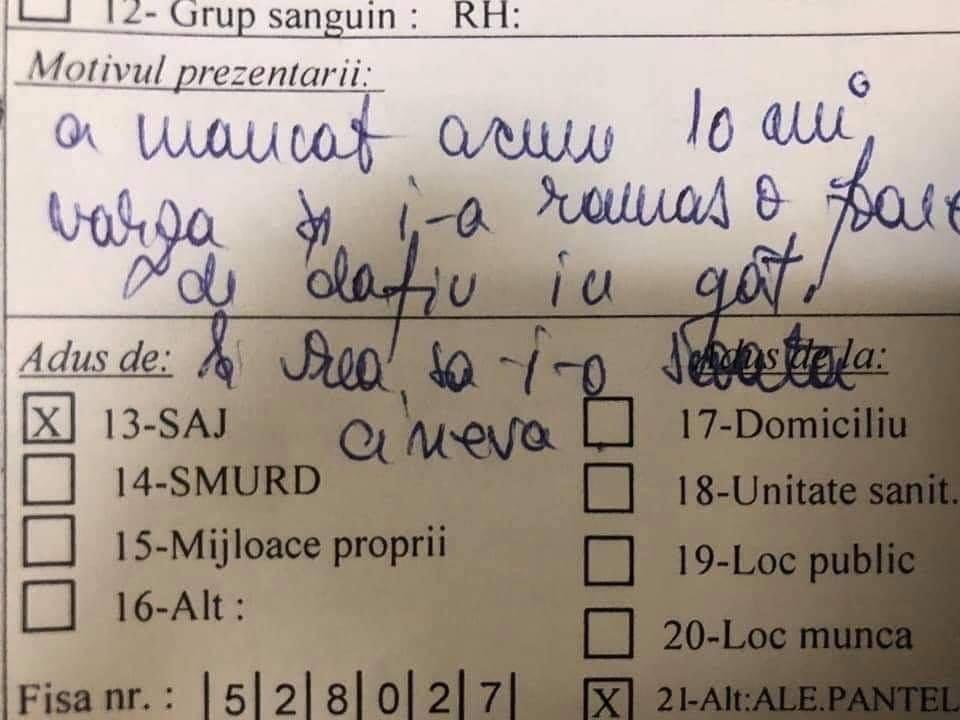 12- Grup sanguin : RH:
Motivul prezentarii:
a mancat acum 10 ani,
varza și i-a ramas o foaie
de dafin in gât.
Adus de: și vrea sa-i-o scoata Adus de la:
X 13-SAJ cineva 17-Domiciliu
14-SMURD 18-Unitate sanit.
15-Mijloace proprii 19-Loc public
16-Alt : 20-Loc munca
Fisa nr. : |5|2|8|0|2|7| X 21-Alt:ALE.PANTEL